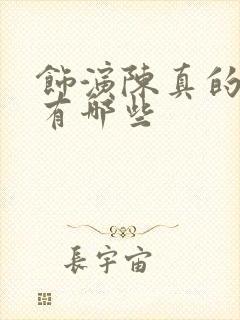 飾演陳真的
有哪些
長宇宙